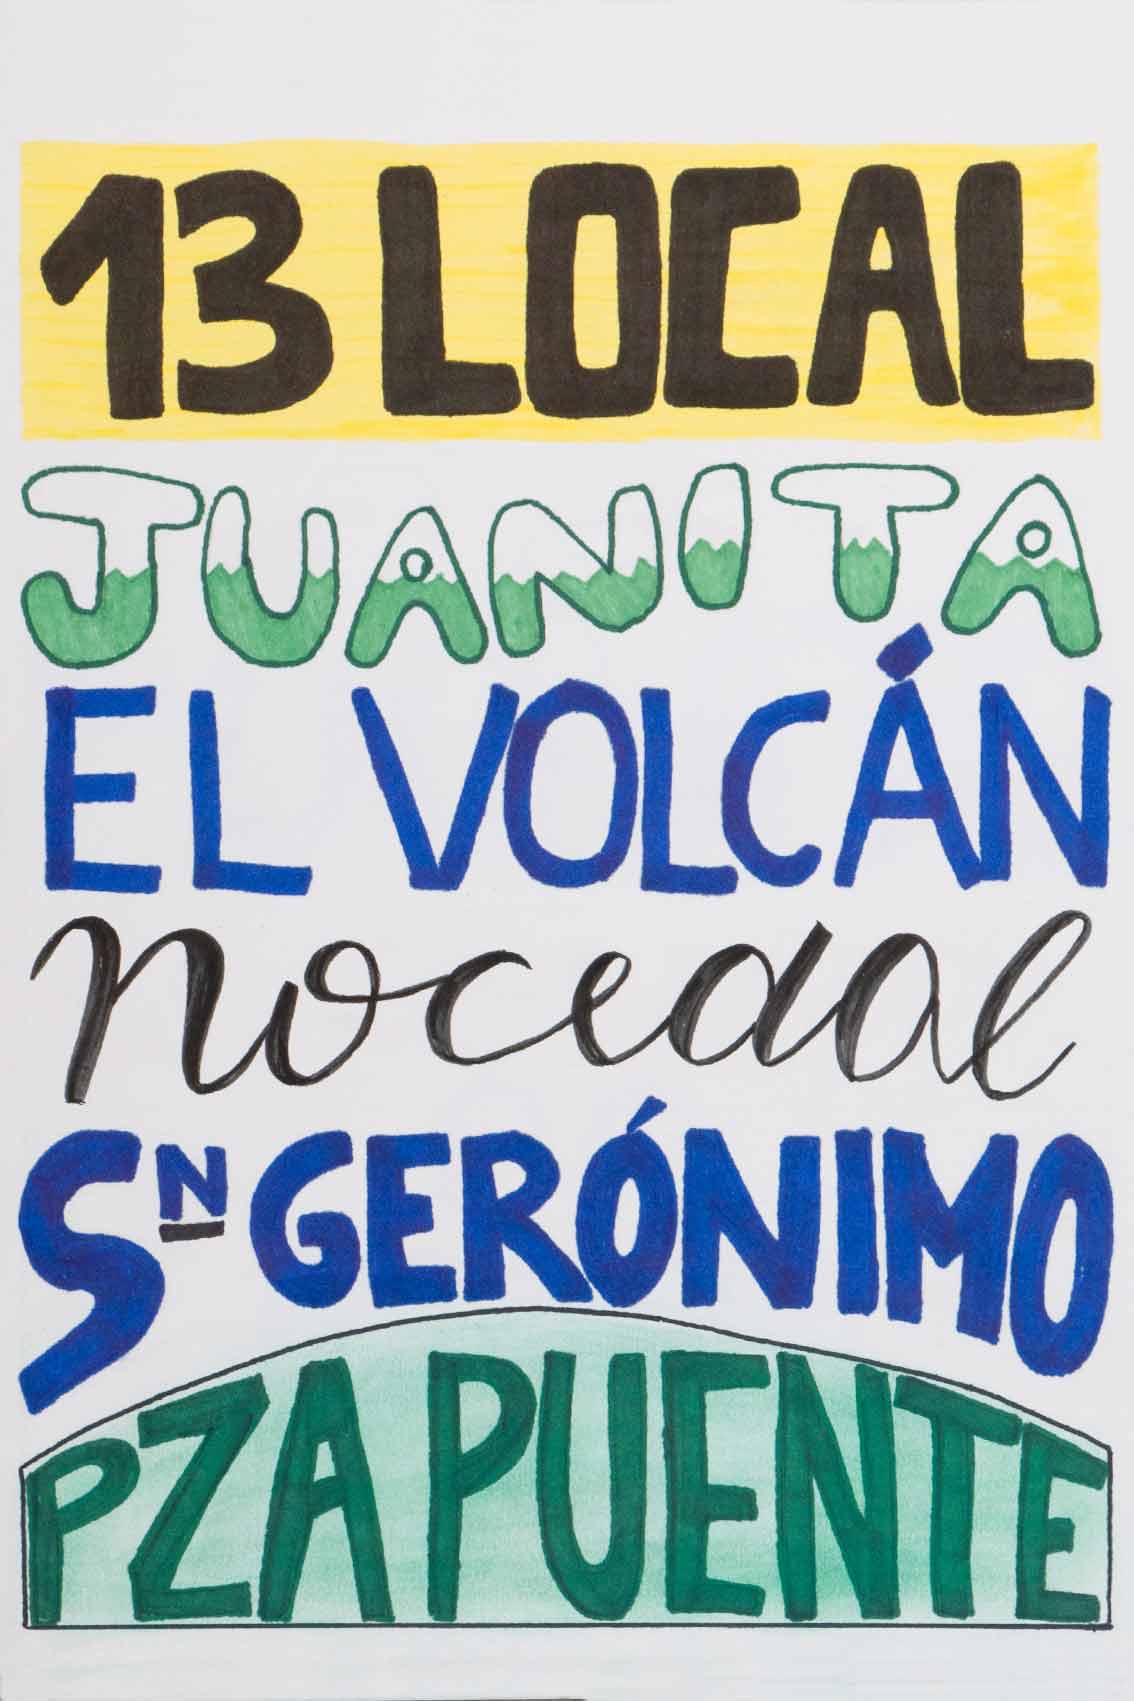 13 LOCAL
JUANITA
EL VOLCÁN
Nocedal
SN GERÓNIMO
PZA PUENTE